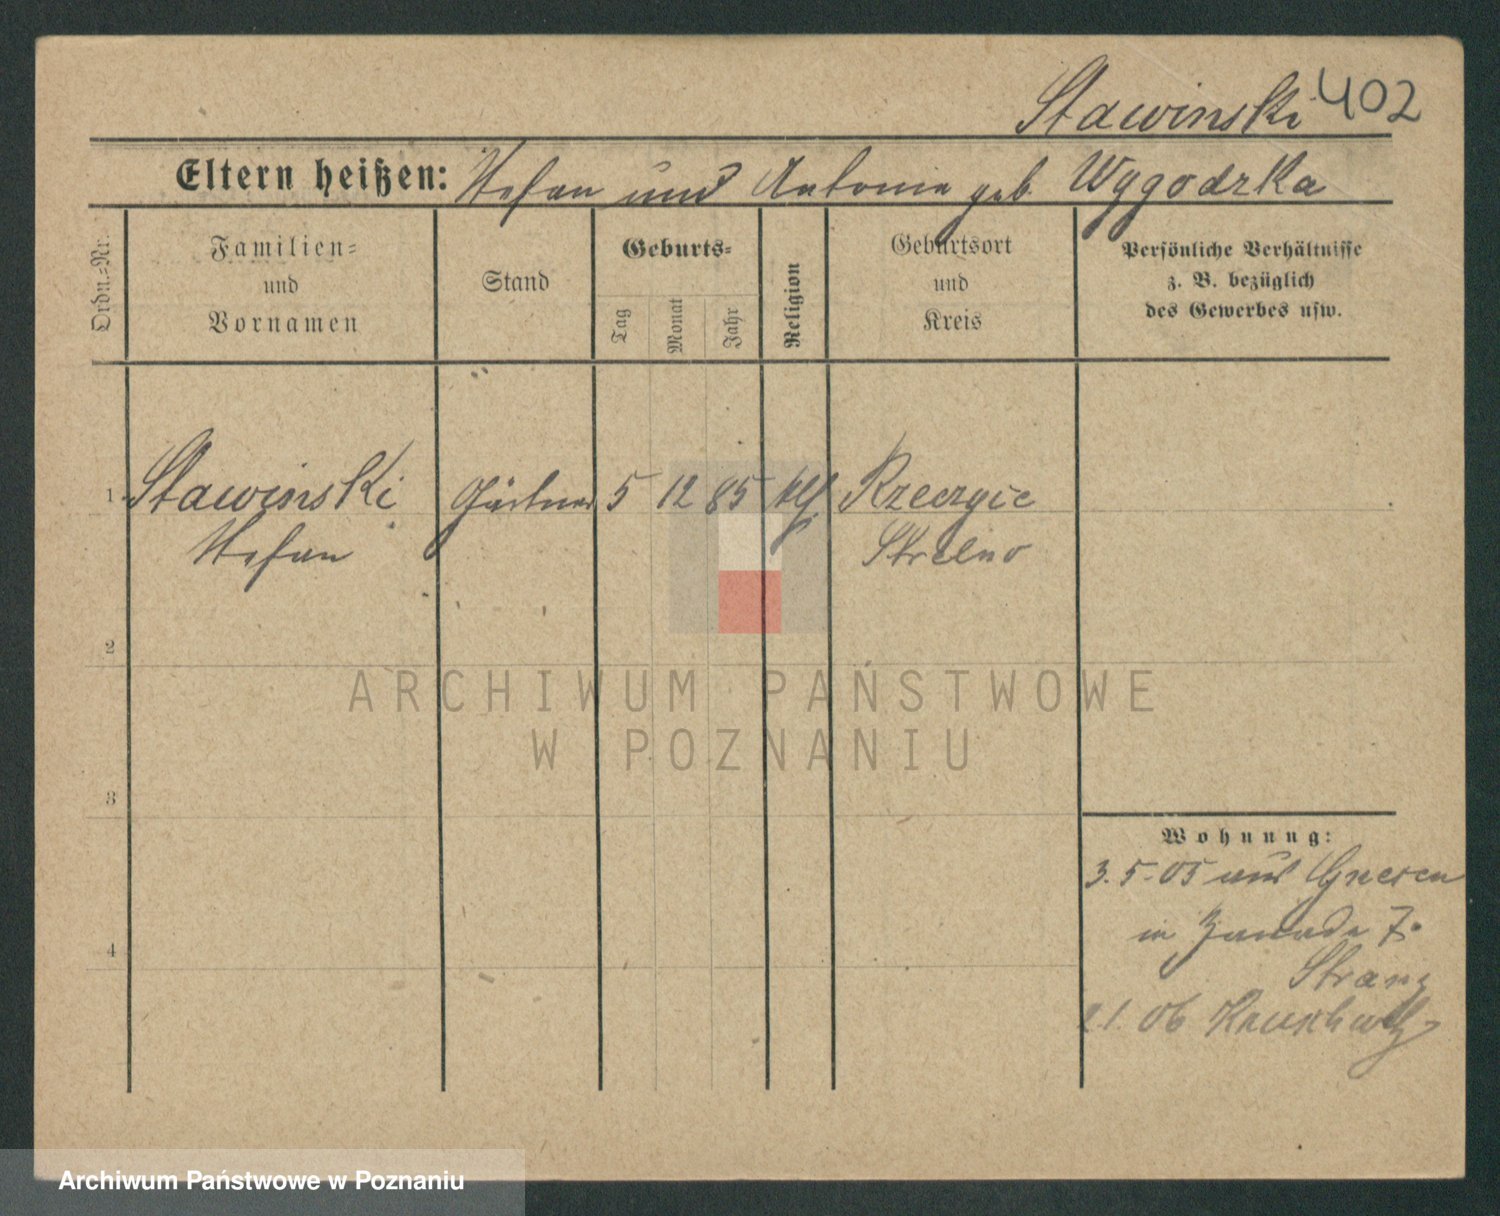 Stawinski 402
Eltern heißen: Stefan und Antonie geb. Wygodzka
Ordn.-Nr.
Familien-
und
Vornamen
Stand
Geburts-
Tag
Monat
Jahr
Religion
Geburtsort
und
Kreis
Persönliche Verhältnisse
z. B. bezüglich
des Gewerbes usw.
1 Stawinski Gärtner 5 12 85 kth Rzeczyce
Stefan Strelno
2
3
4
Wohnung:
3.5.05 aus Gnesen
in 7.
21.06
ARCHIWUM PAŃSTWOWE
W POZNANIU
Archiwum Państwowe w Poznaniu